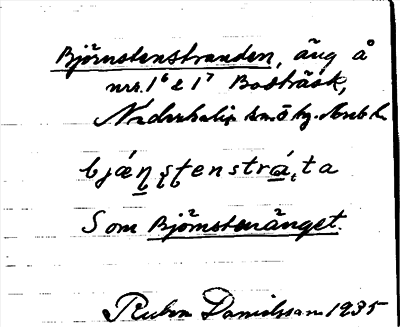 Björnstenstranden, äng å
nrs. 1⁶ & 1⁷ Bodträsk,
Nederkalix sn. ö
bjǽn̠ ştenstrá̠,ta
Som Björnstenänget.
Ruben Danielsson 1935